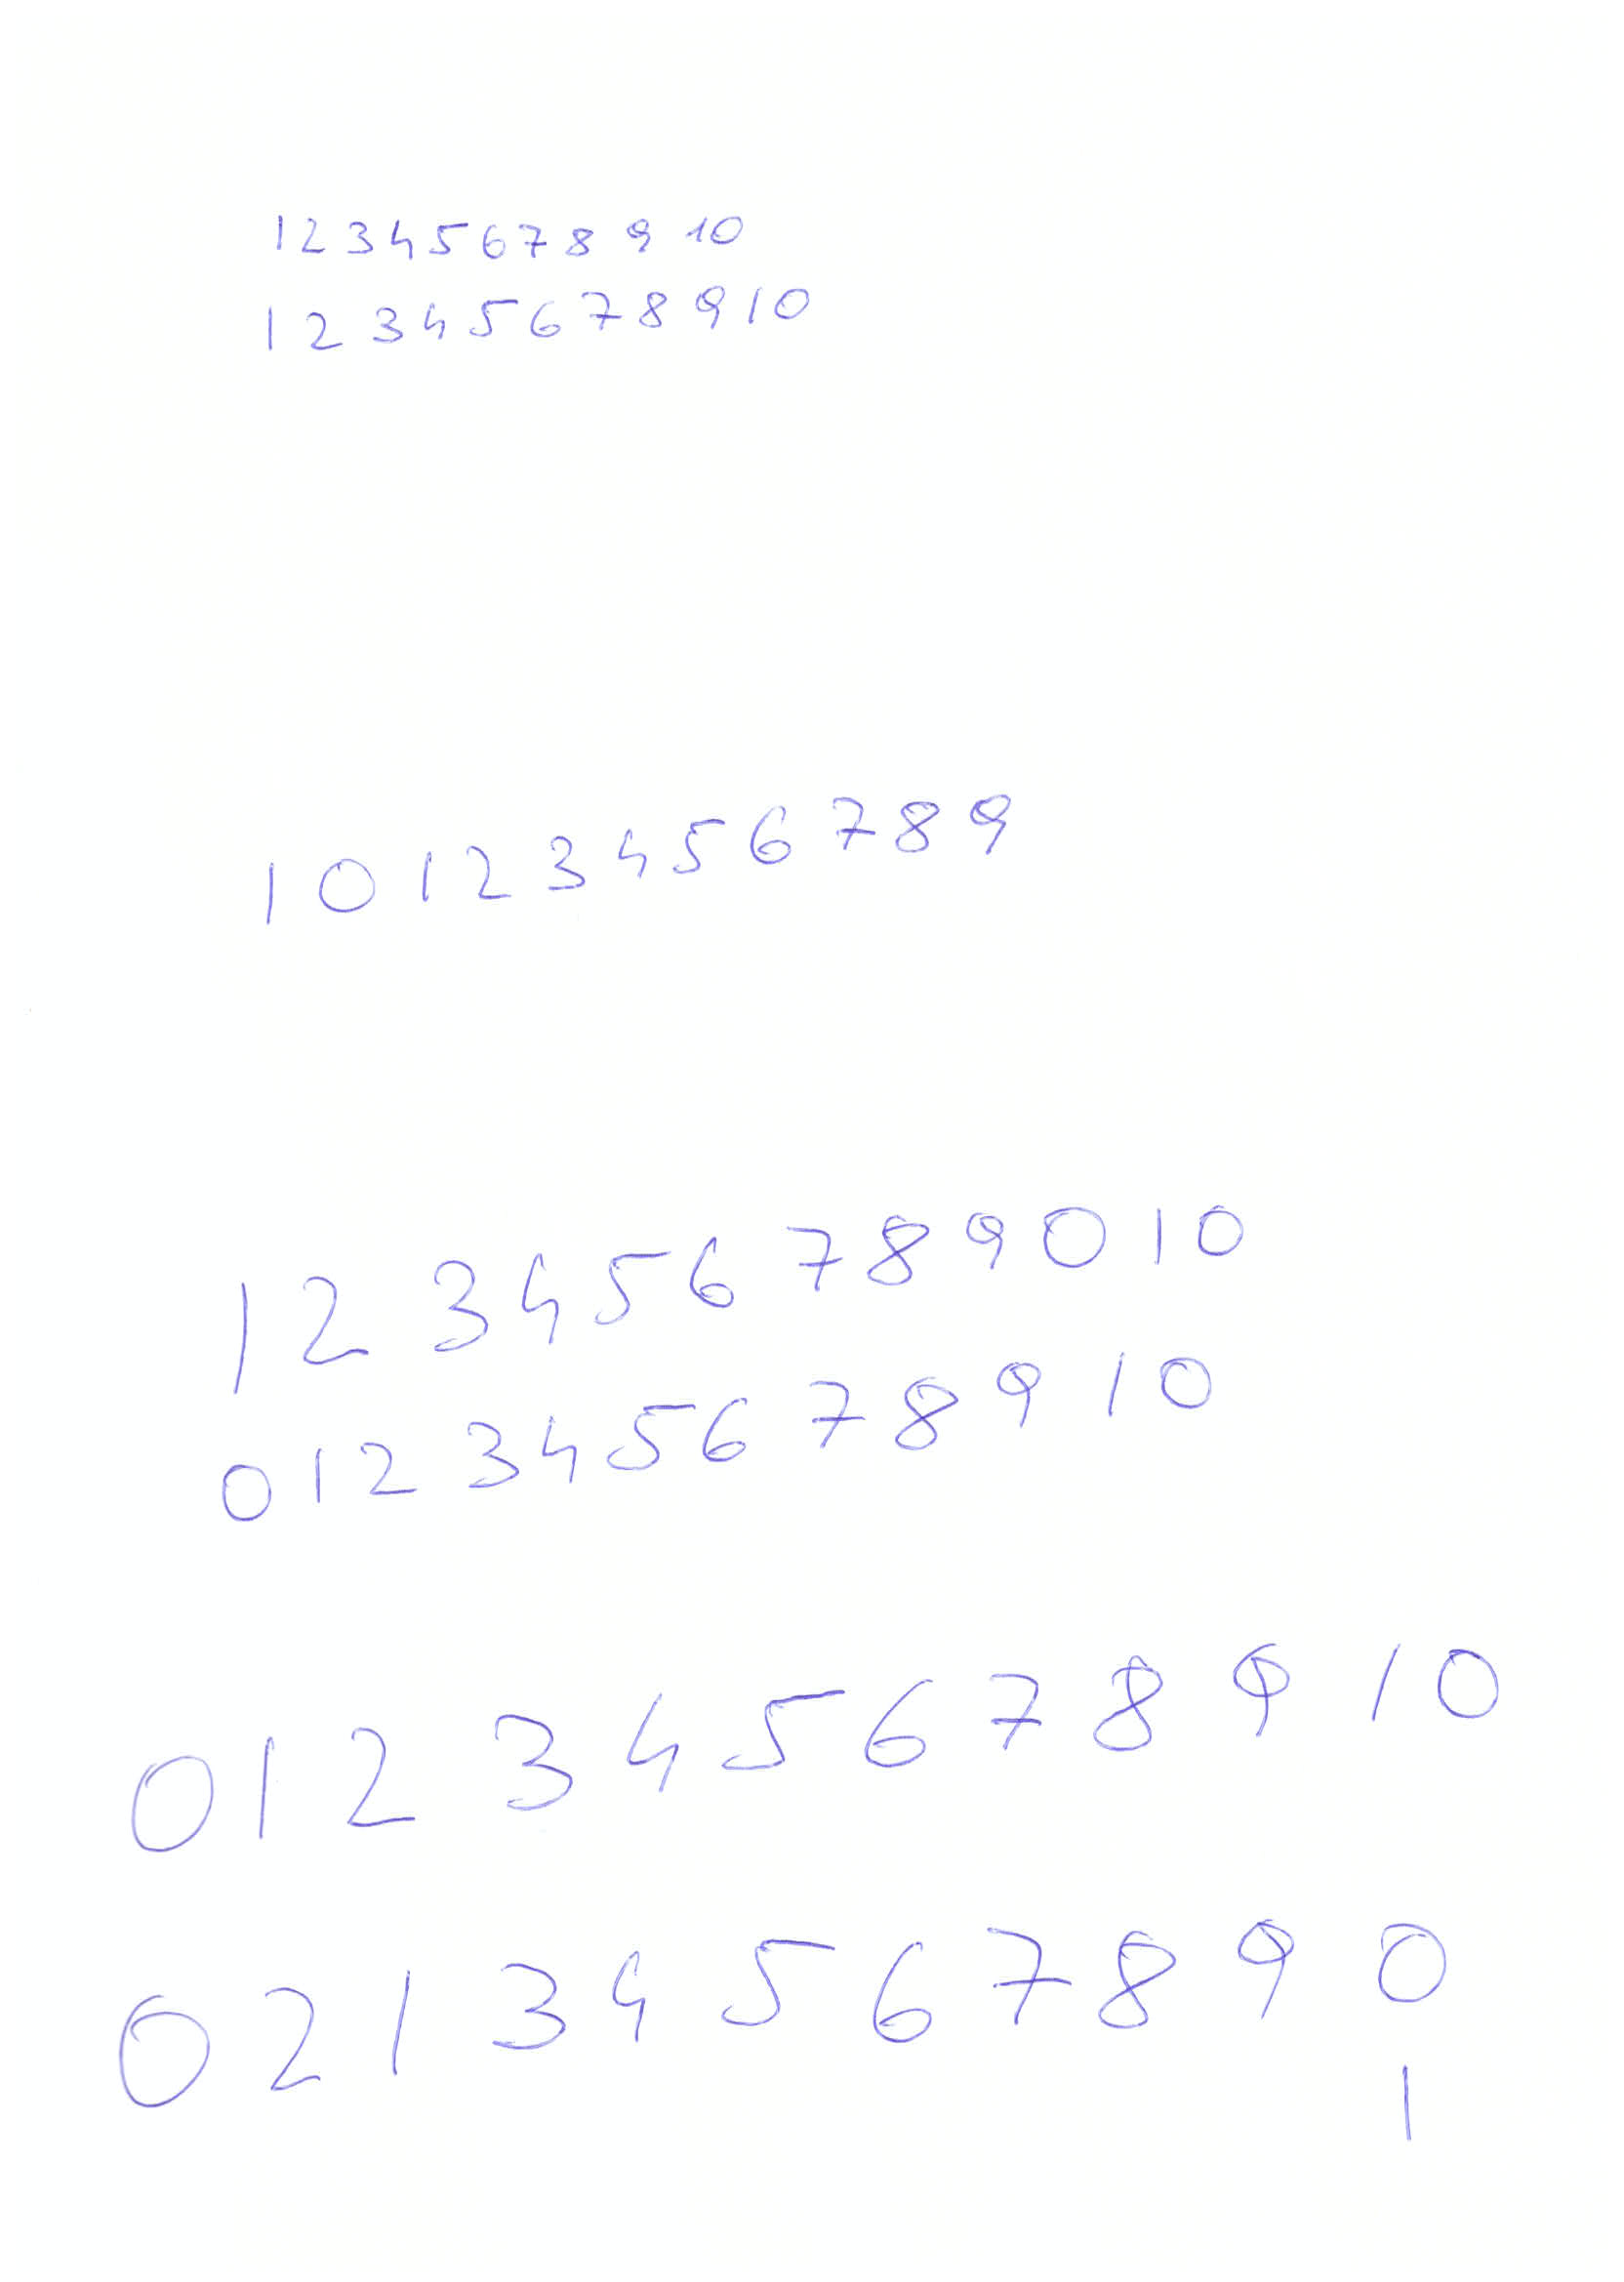 1 2 3 4 5 6 7 8 9 10
1 2 3 4 5 6 7 8 9 10
1 0 1 2 3 4 5 6 7 8 9
1 2 3 4 5 6 7 8 9 0 1 0
0 1 2 3 4 5 6 7 8 9 1 0
0 1 2 3 4 5 6 7 8 9 1 0
0 2 1 3 4 5 6 7 8 9 0
1